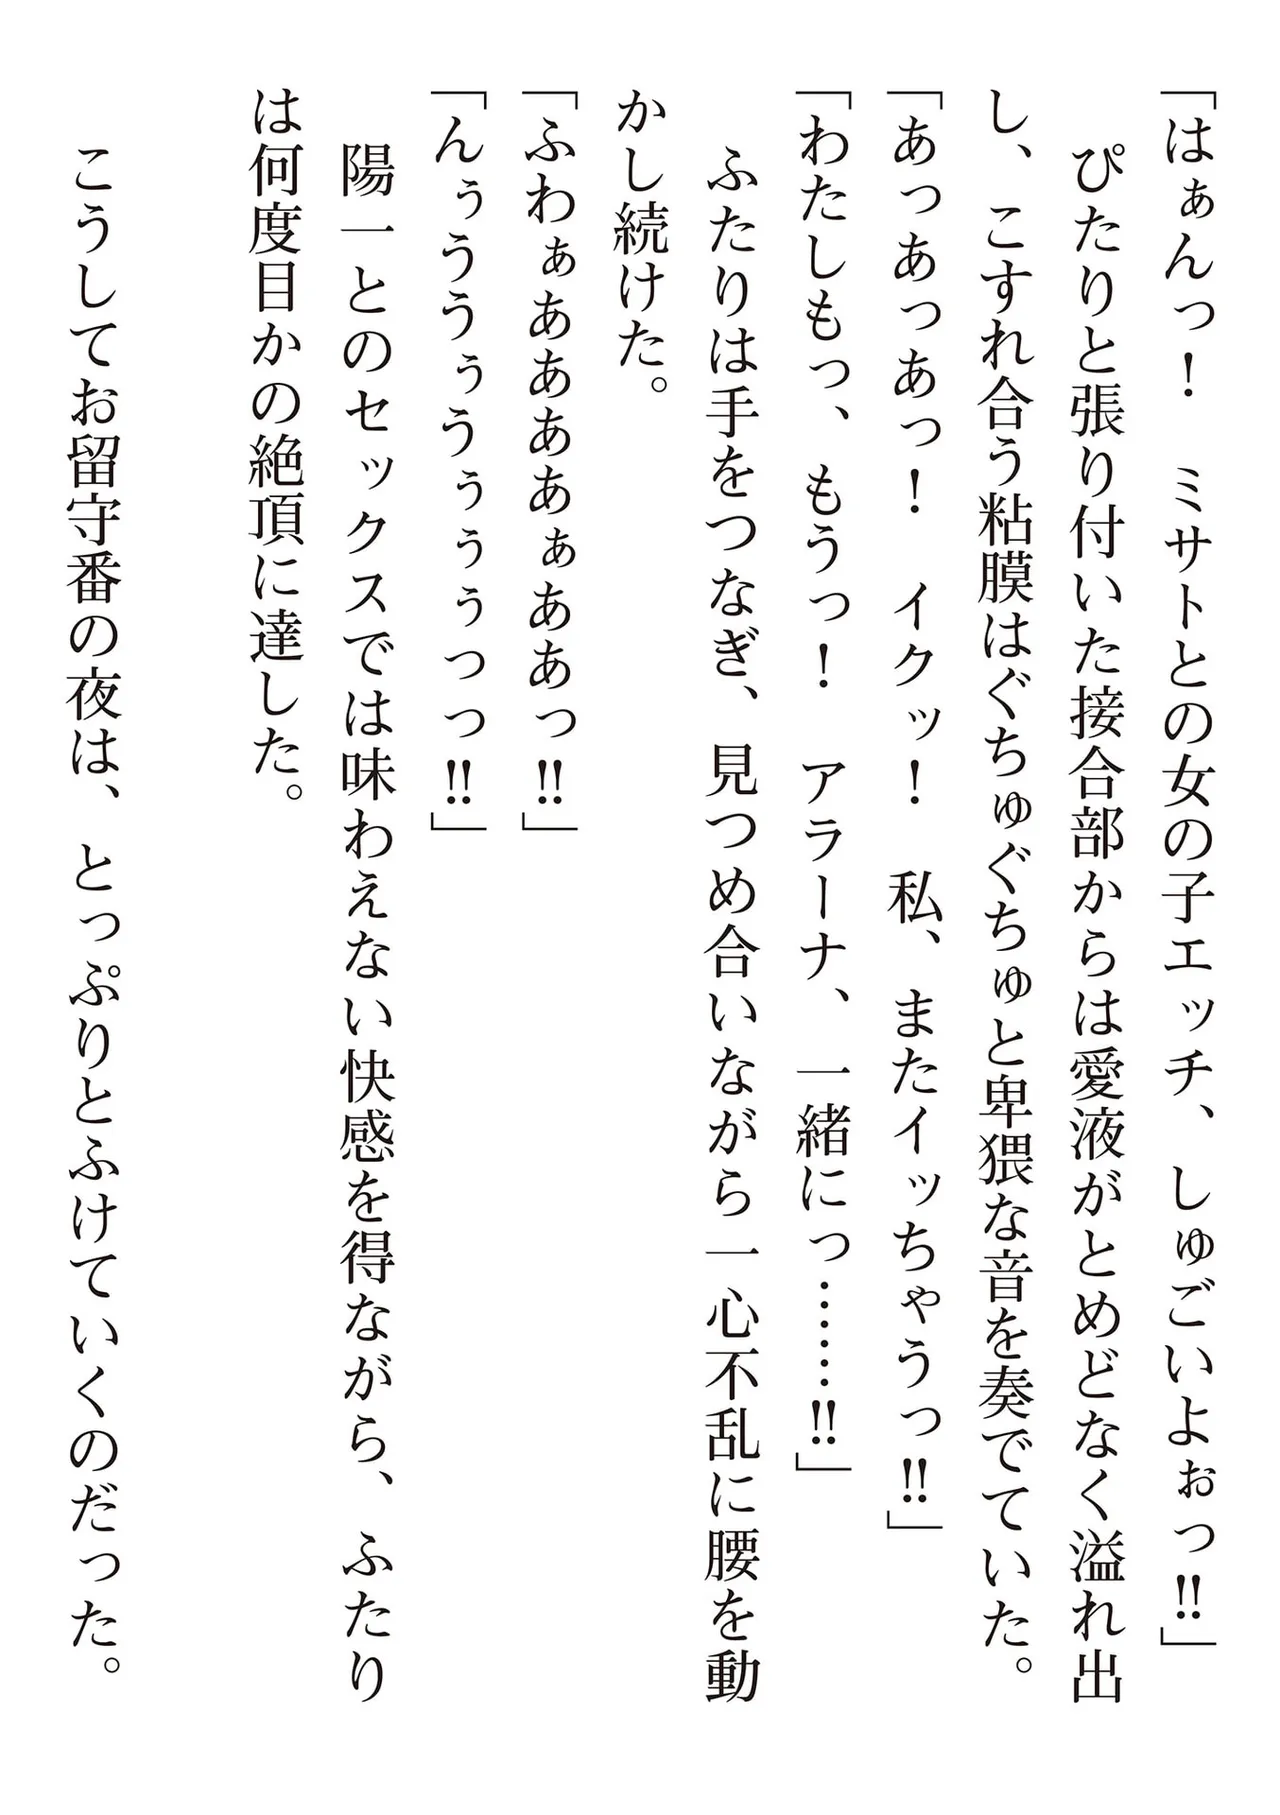 「はぁんっ！　ミサトとの女の子エッチ、しゅごいよぉっ‼」
　ぴたりと張り付いた接合部からは愛液がとめどなく溢れ出
し、こすれ合う粘膜はぐちゅぐちゅと卑猥な音を奏でていた。
「あっあっあっ！　イクッ！　私、またイッちゃうっ‼」
「わたしもっ、もうっ！　アラーナ、一緒にっ……‼」
　ふたりは手をつなぎ、見つめ合いながら一心不乱に腰を動
かし続けた。
「ふわぁああああぁああっ‼」
「んぅううぅうぅぅぅっっ‼」
　陽一とのセックスでは味わえない快感を得ながら、ふたり
は何度目かの絶頂に達した。
　こうしてお留守番の夜は、とっぷりとふけていくのだった。